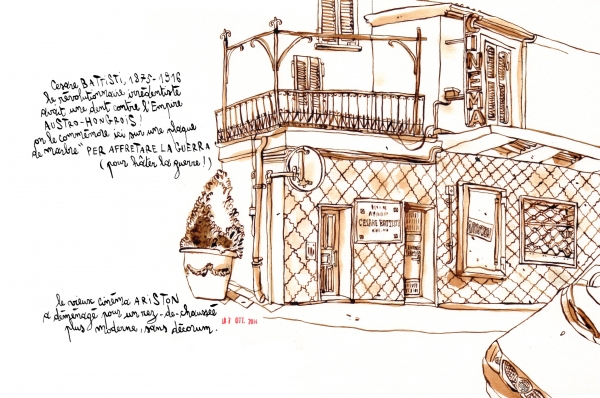 Cesare BATTISTI, 1875-1916
le révolutionnaire irrédentiste
avait une dent contre l'Empire
AUSTRO-HONGROIS!
on le commémore ici sur une plaque
de marbre "PER AFFRETARE LA GUERRA
(pour hâter la guerre!)
CINEMA
CESARE BATTISTI
le vieux cinéma ARISTON
a déménagé pour un rez-de-chaussée
plus moderne, sans décorum.
OTT. 2014